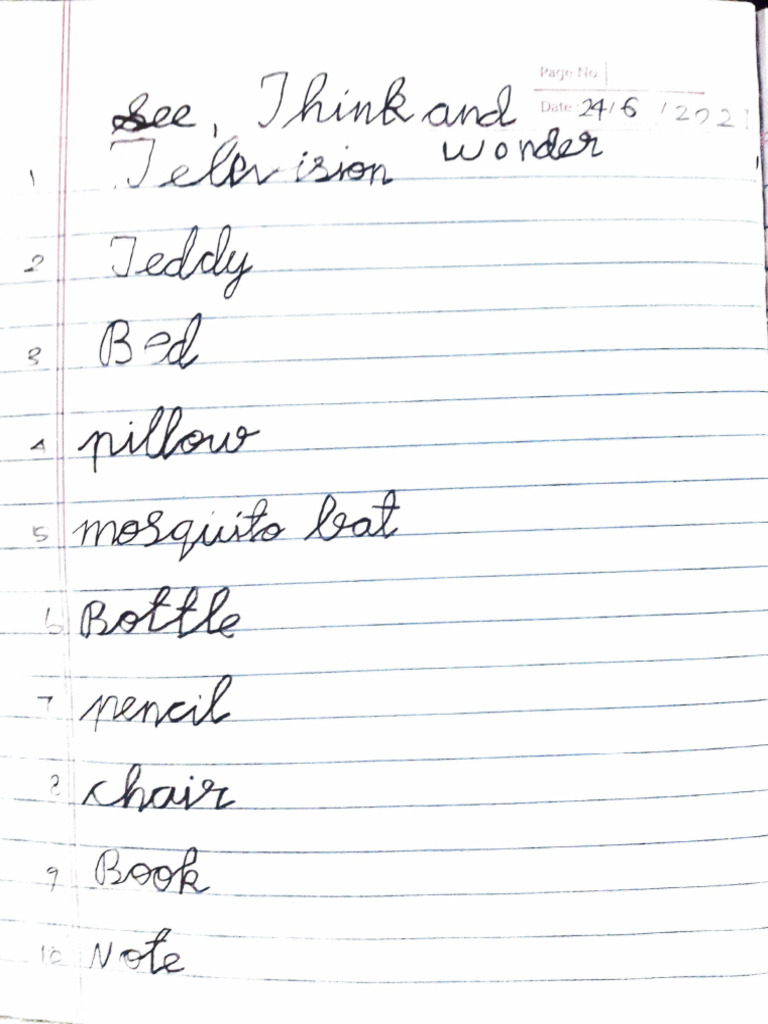 Page No.
Date 24/6/2021
See, Think and
wonder
1 Television
2 Teddy
3 Bed
4 pillow
5 mosquito bat
6 Bottle
7 pencil
8 chair
9 Book
10 Note